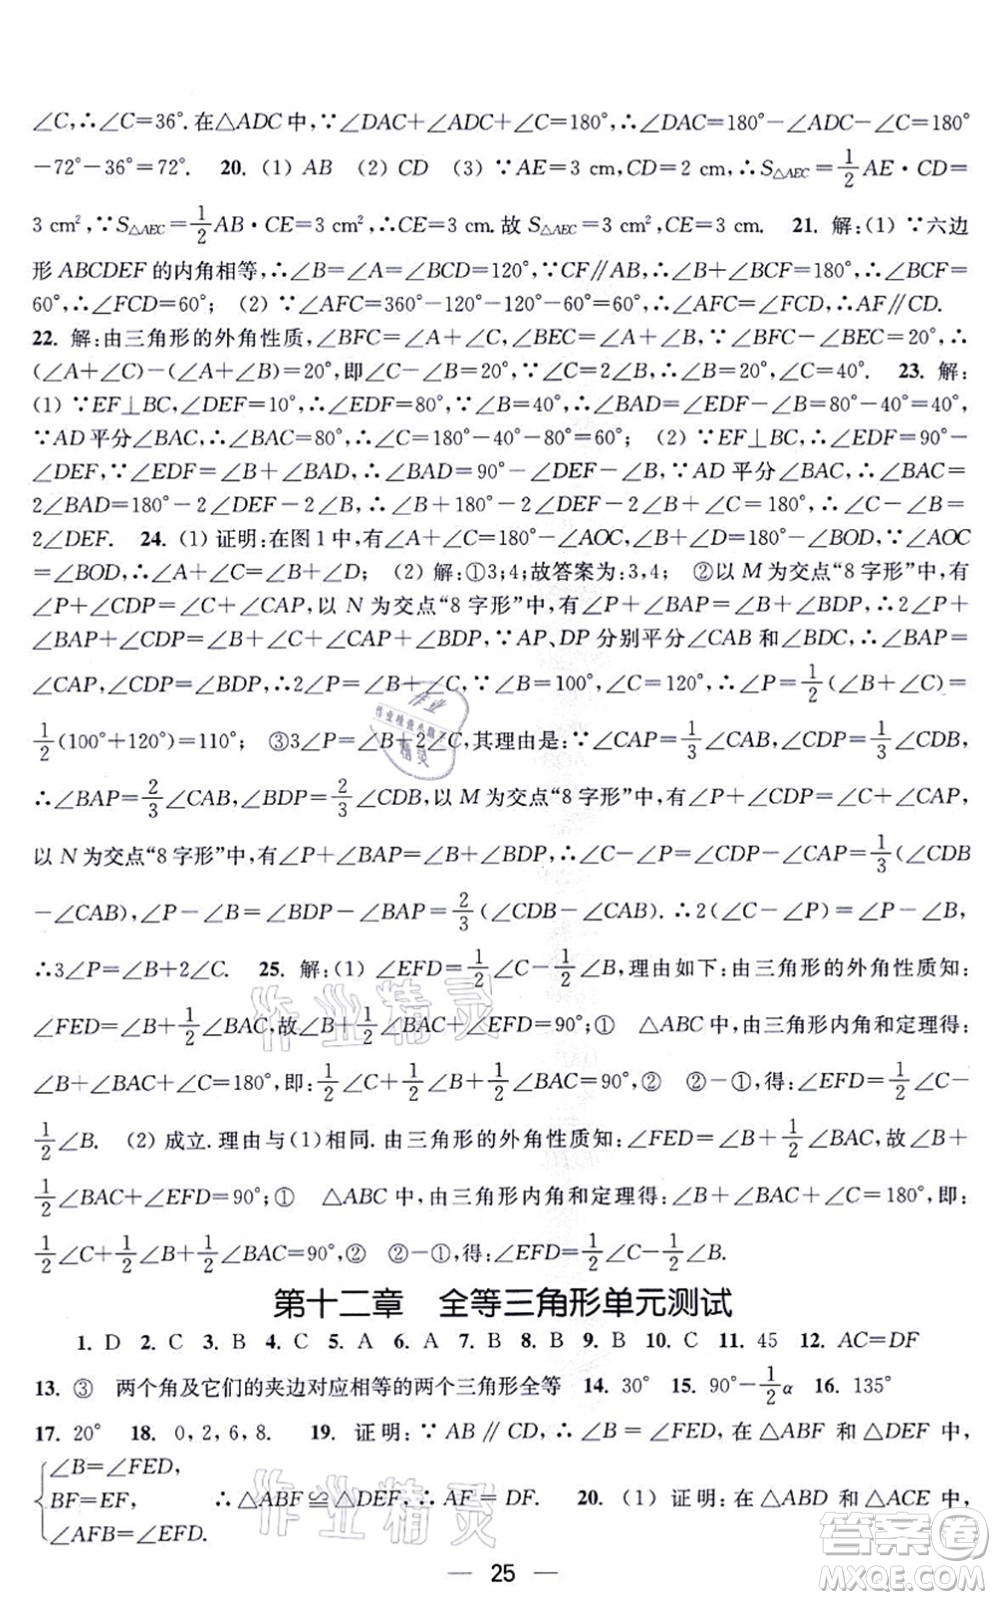 ∠C,∴∠C=36°.在△ADC中,∵∠DAC+∠ADC+∠C=180°,∴∠DAC=180°-∠ADC-∠C=180°
-72°-36°=72°. 20. (1) AB (2) CD (3) ∵AE=3 cm,CD=2 cm,∴S△AEC=1/2 AE·CD=
3 cm²,∵S△AEC=1/2 AB·CE=3 cm²,∴CE=3 cm.故 S△AEC=3 cm²,CE=3 cm. 21. 解:(1) ∵六边
形 ABCDEF 的内角相等,∴∠B=∠A=∠BCD=120°,∵CF∥AB,∴∠B+∠BCF=180°,∴∠BCF=
60°,∴∠FCD=60°; (2) ∵∠AFC=360°-120°-120°-60°=60°,∴∠AFC=∠FCD,∴AF∥CD.
22. 解:由三角形的外角性质,∠BFC=∠A+∠C,∠BEC=∠A+∠B,∵∠BFC-∠BEC=20°,∴
(∠A+∠C)-(∠A+∠B)=20°,即∠C-∠B=20°,∵∠C=2∠B,∴∠B=20°,∠C=40°. 23. 解:
(1) ∵EF⊥BC,∠DEF=10°,∴∠EDF=80°,∵∠B=40°,∴∠BAD=∠EDF-∠B=80°-40°=40°,
∵AD 平分∠BAC,∴∠BAC=80°,∴∠C=180°-40°-80°=60°; (2) ∵EF⊥BC,∴∠EDF=90°-
∠DEF,∵∠EDF=∠B+∠BAD,∴∠BAD=90°-∠DEF-∠B,∵AD 平分∠BAC,∴∠BAC=
2∠BAD=180°-2∠DEF-2∠B,∴∠B+180°-2∠DEF-2∠B+∠C=180°,∴∠C-∠B=
2∠DEF. 24. (1) 证明:在图 1 中,有∠A+∠C=180°-∠AOC,∠B+∠D=180°-∠BOD,∵∠AOC
=∠BOD,∴∠A+∠C=∠B+∠D; (2) 解:①3;4;故答案为:3,4; ②以 M 为交点“8 字形”中,有
∠P+∠CDP=∠C+∠CAP,以 N 为交点“8 字形”中,有∠P+∠BAP=∠B+∠BDP,∴2∠P+
∠BAP+∠CDP=∠B+∠C+∠CAP+∠BDP,∵AP、DP 分别平分∠CAB 和∠BDC,∴∠BAP=
∠CAP,∠CDP=∠BDP,∴2∠P=∠B+∠C,∵∠B=100°,∠C=120°,∴∠P=1/2(∠B+∠C)=
1/2(100°+120°)=110°; ③3∠P=∠B+2∠C,其理由是:∵∠CAP=1/3∠CAB,∠CDP=1/3∠CDB,
∴∠BAP=2/3∠CAB,∠BDP=2/3∠CDB,以 M 为交点“8 字形”中,有∠P+∠CDP=∠C+∠CAP,
以 N 为交点“8 字形”中,有∠P+∠BAP=∠B+∠BDP,∴∠C-∠P=∠CDP-∠CAP=1/3(∠CDB
-∠CAB),∠P-∠B=∠BDP-∠BAP=2/3(∠CDB-∠CAB).∴2(∠C-∠P)=∠P-∠B,
∴3∠P=∠B+2∠C. 25. 解:(1) ∠EFD=1/2∠C-1/2∠B,理由如下:由三角形的外角性质知:
∠FED=∠B+1/2∠BAC,故∠B+1/2∠BAC+∠EFD=90°;① △ABC 中,由三角形内角和定理得:
∠B+∠BAC+∠C=180°,即:1/2∠C+1/2∠B+1/2∠BAC=90°,② ②-①,得:∠EFD=1/2∠C-
1/2∠B. (2) 成立.理由与(1)相同.由三角形的外角性质知:∠FED=∠B+1/2∠BAC,故∠B+
1/2∠BAC+∠EFD=90°;① △ABC 中,由三角形内角和定理得:∠B+∠BAC+∠C=180°,即:
1/2∠C+1/2∠B+1/2∠BAC=90°,② ②-①,得:∠EFD=1/2∠C-1/2∠B.
第十二章 全等三角形单元测试
1. D 2. C 3. B 4. C 5. A 6. A 7. B 8. B 9. B 10. C 11. 45 12. AC=DF
13. ③ 两个角及它们的夹边对应相等的两个三角形全等 14. 30° 15. 90°-1/2α 16. 135°
17. 20° 18. 0,2,6,8. 19. 证明:∵AB∥CD,∴∠B=∠FED,在△ABF 和△DEF 中,
{∠B=∠FED,
BF=EF, ∴△ABF≌△DEF,∴AF=DF. 20. (1) 证明:在△ABD 和△ACE 中,
∠AFB=∠EFD.
25
作业精灵
作业精灵
作业
作业检查小助手
精灵
答案圈
MXQE.COM